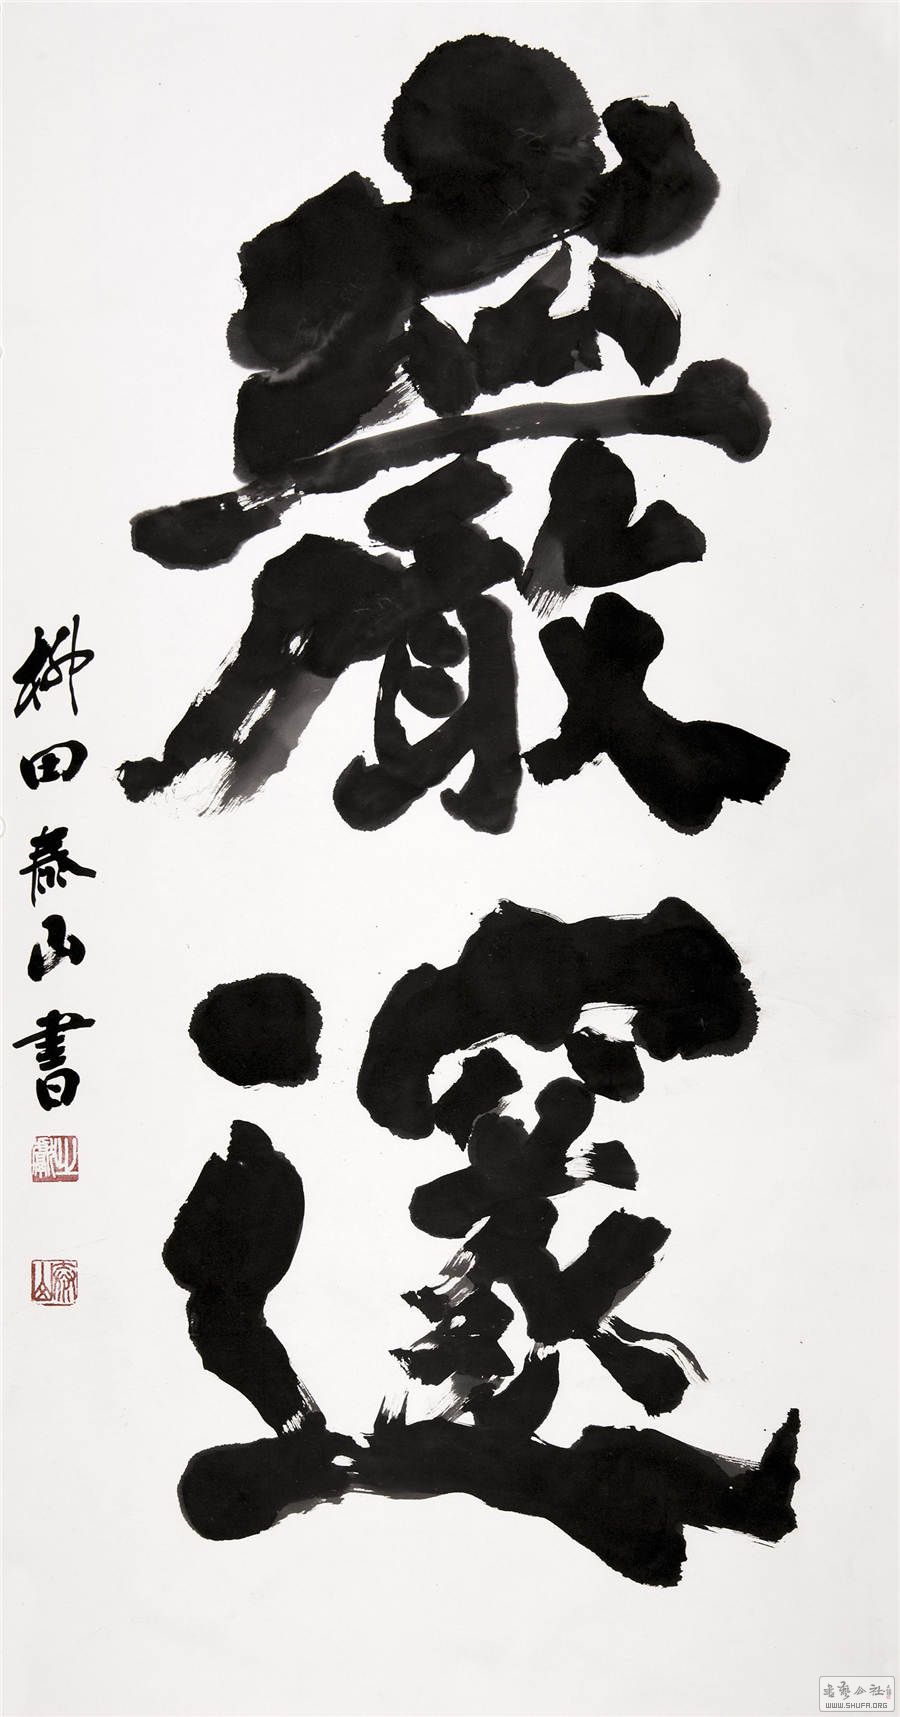 巖邃
柳田泰山書
泰山
書藝公社
WWW.SHUFA.ORG